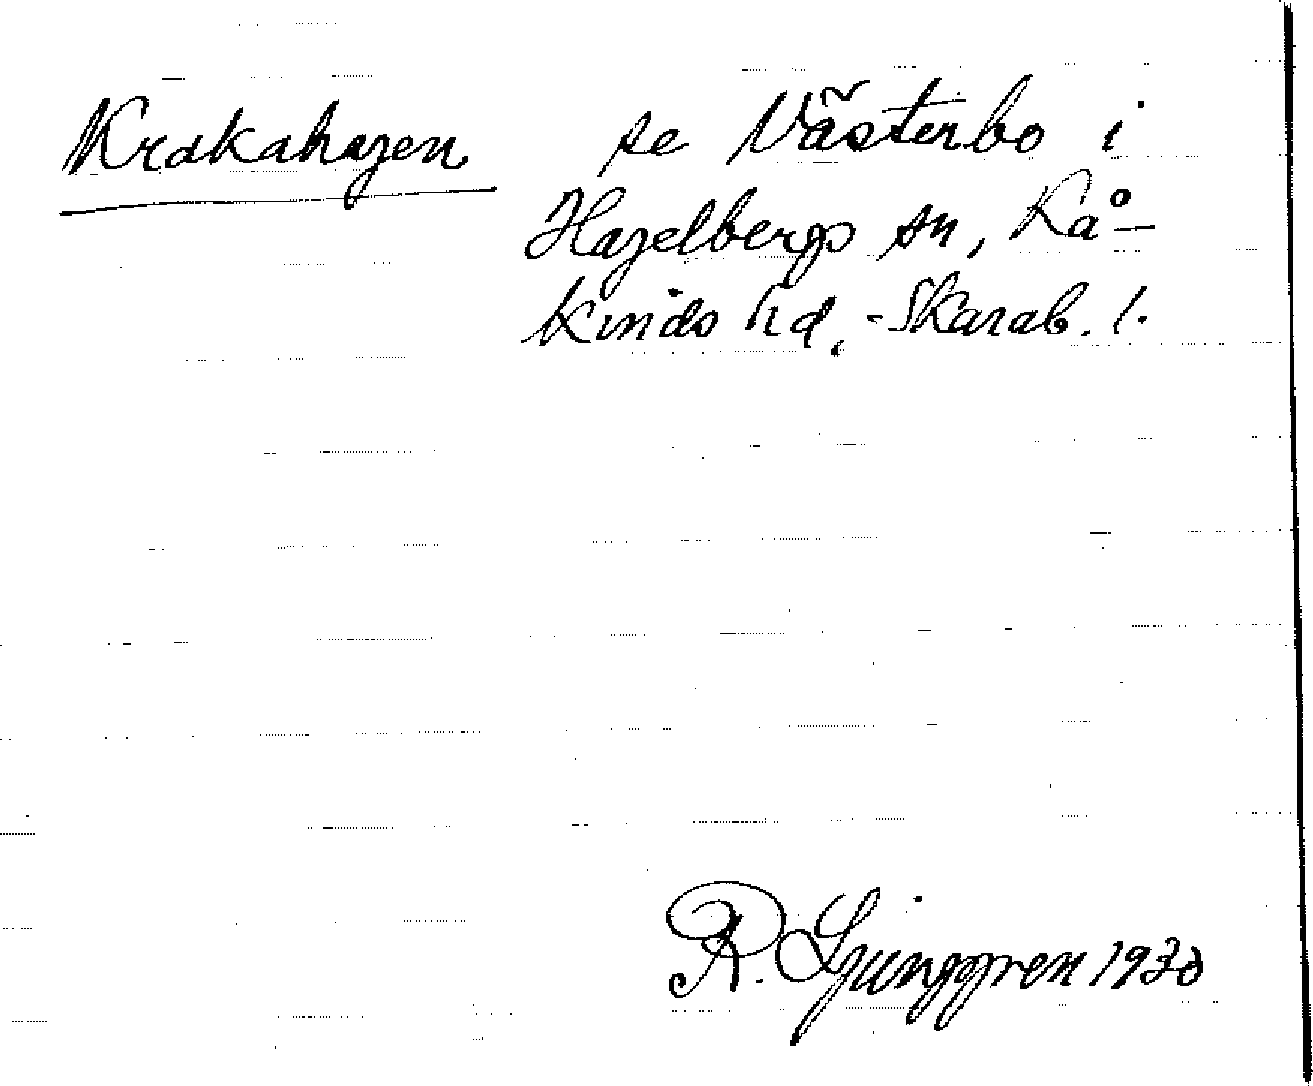 Krakahagen se Västerbo i
Hagelbergs sn, Kå-
kinds hd, Skarab. l.
R. Ljunggren 1930